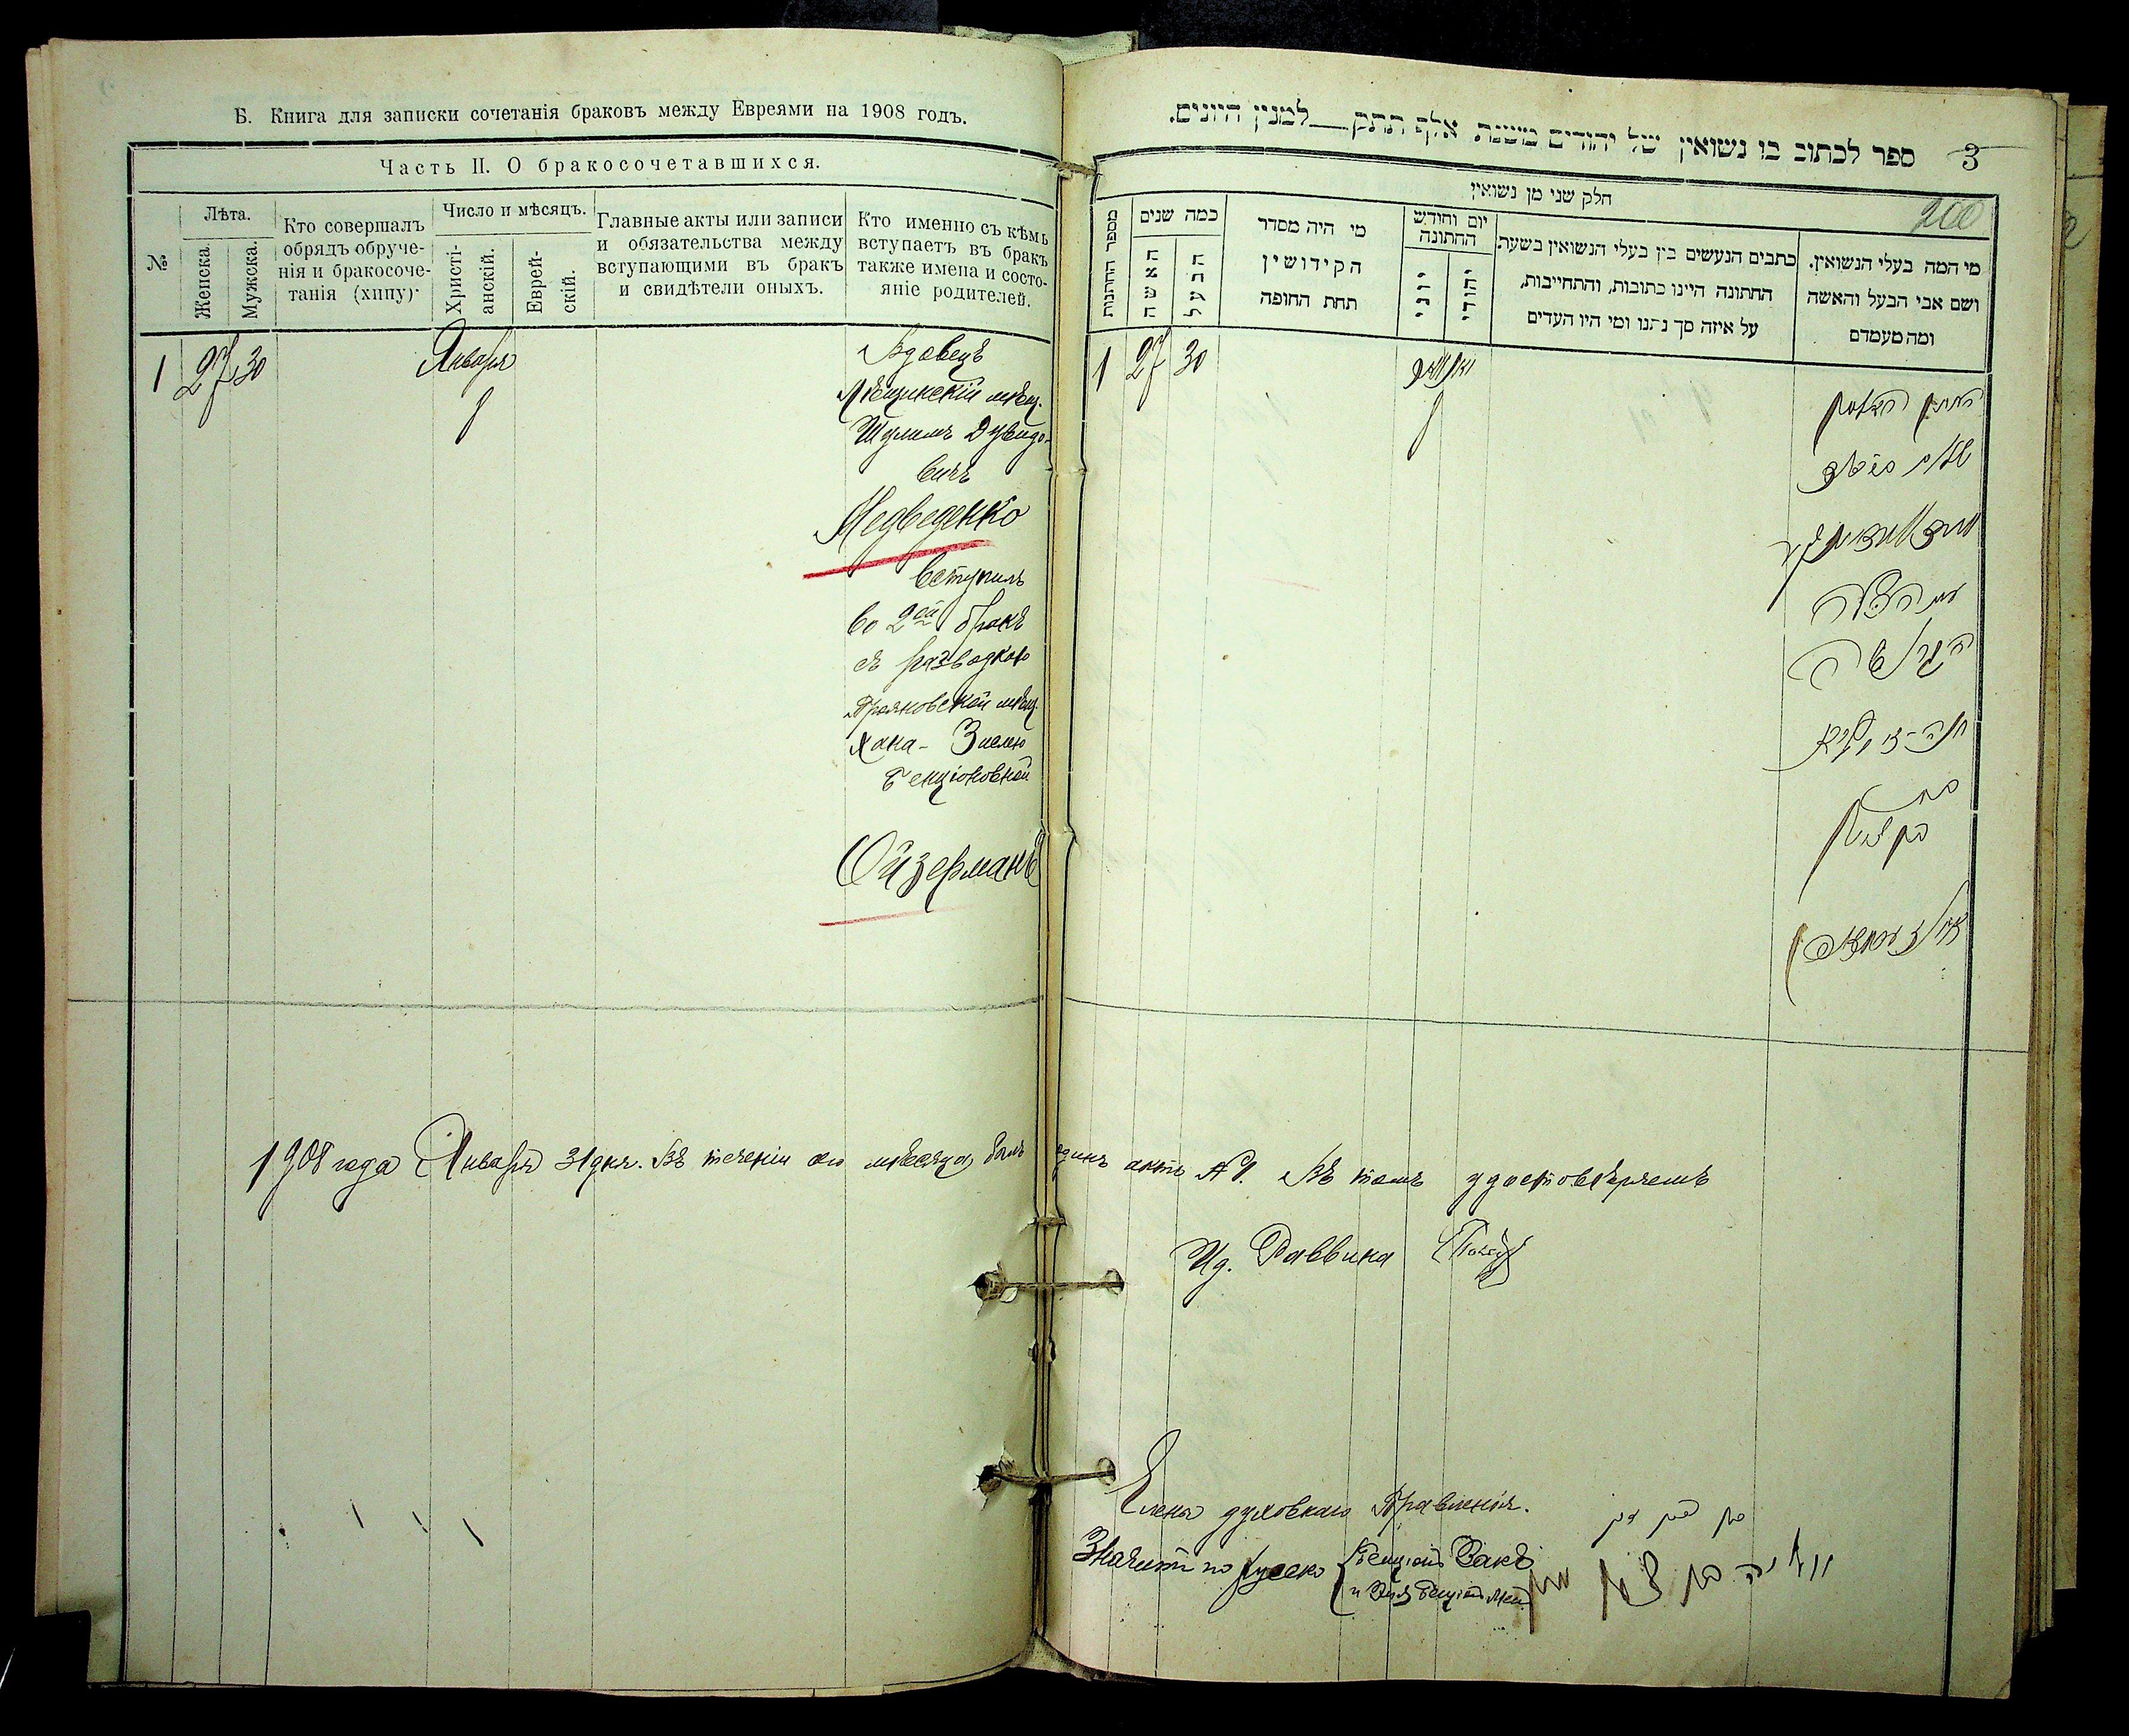 Б. Книга для записки сочетанія браковъ между Евреями на 1908 годъ.
Часть II. О бракосочетавшихся.
№
Лѣта.
Женска.
Мужска.
Кто совершалъ
обрядъ обруче-
нія и бракосоче-
танія (хипу)·
Число и мѣсяцъ.
Христі-
анскій.
Еврей-
скій.
Главные акты или записи
и обязательства между
вступающими въ бракъ
и свидѣтели оныхъ.
Кто именно съ кѣмъ
вступаетъ въ бракъ
также имена и состо-
яніе родителей.
1 27 30
Января
1
Вдовецъ
мѣщ.
Шулимъ Дувидо-
вичъ
Медведенко
вступилъ
во 2ой бракъ
съ разводкою
Трояновской мѣщ.
Хана-Зислею
Бенціоновной
Ойзерманъ
1908 года Января 31 дня. Въ теченіи сего мѣсяца былъ одинъ актъ №1. Въ томъ удостовѣряемъ
Ид. Раввина
Члены духовнаго Правленія.
Значитъ по русско Бенціонъ Закъ
3
ספר לכתוב בו נשואין של יהודים משנת אלף תתק—למנין היונים.
200
חלק שני מן נשואין
מספר החתנות
כמה שנים
האשה
הבעל
מי היה מסדר
הקידושין
תחת החופה
יום וחודש
החתונה
יוני
יהודי
כתבים הנעשים בין בעלי הנשואין בשעת
החתונה היינו כתובות, והתחייבות,
על איזה סך נתנו ומי היו העדים
מי המה בעלי הנשואין.
ושם אבי הבעל והאשה
ומה מעמדם
1 27 30
1
החתן האלמן
עם הכלה
הגרושה
בת
בן ציון